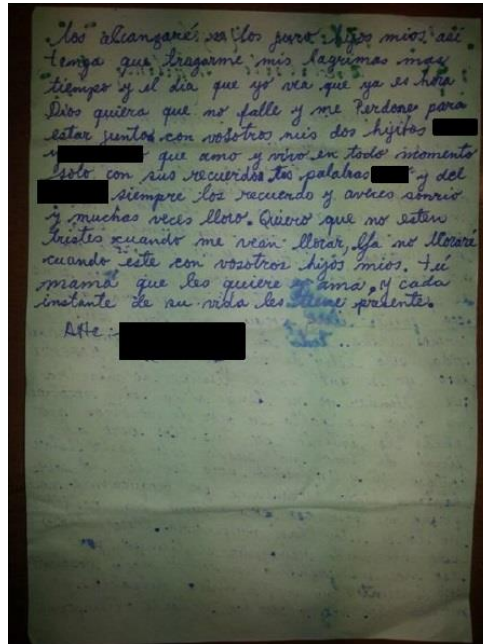 los alcanzaré se los juro hijos mios, asi
tenga que tragarme mis lagrimas mas
tiempo y el dia que yo vea que ya es hora
Dios quiera que no falle y me Perdone para
estar juntos con vosotros mis dos hijitos
que amo y vivo en todo momento
solo con sus recuerdos tus palabras y del
siempre los recuerdo y aveces sonrio
y muchas veces lloro. Quiero que no esten
tristes cuando me vean llorar, Ya no lloraré
cuando este con vosotros hijos mios. Tú
mamá que les quiere ama, y cada
instante de su vida les tiene presente.
Atte: